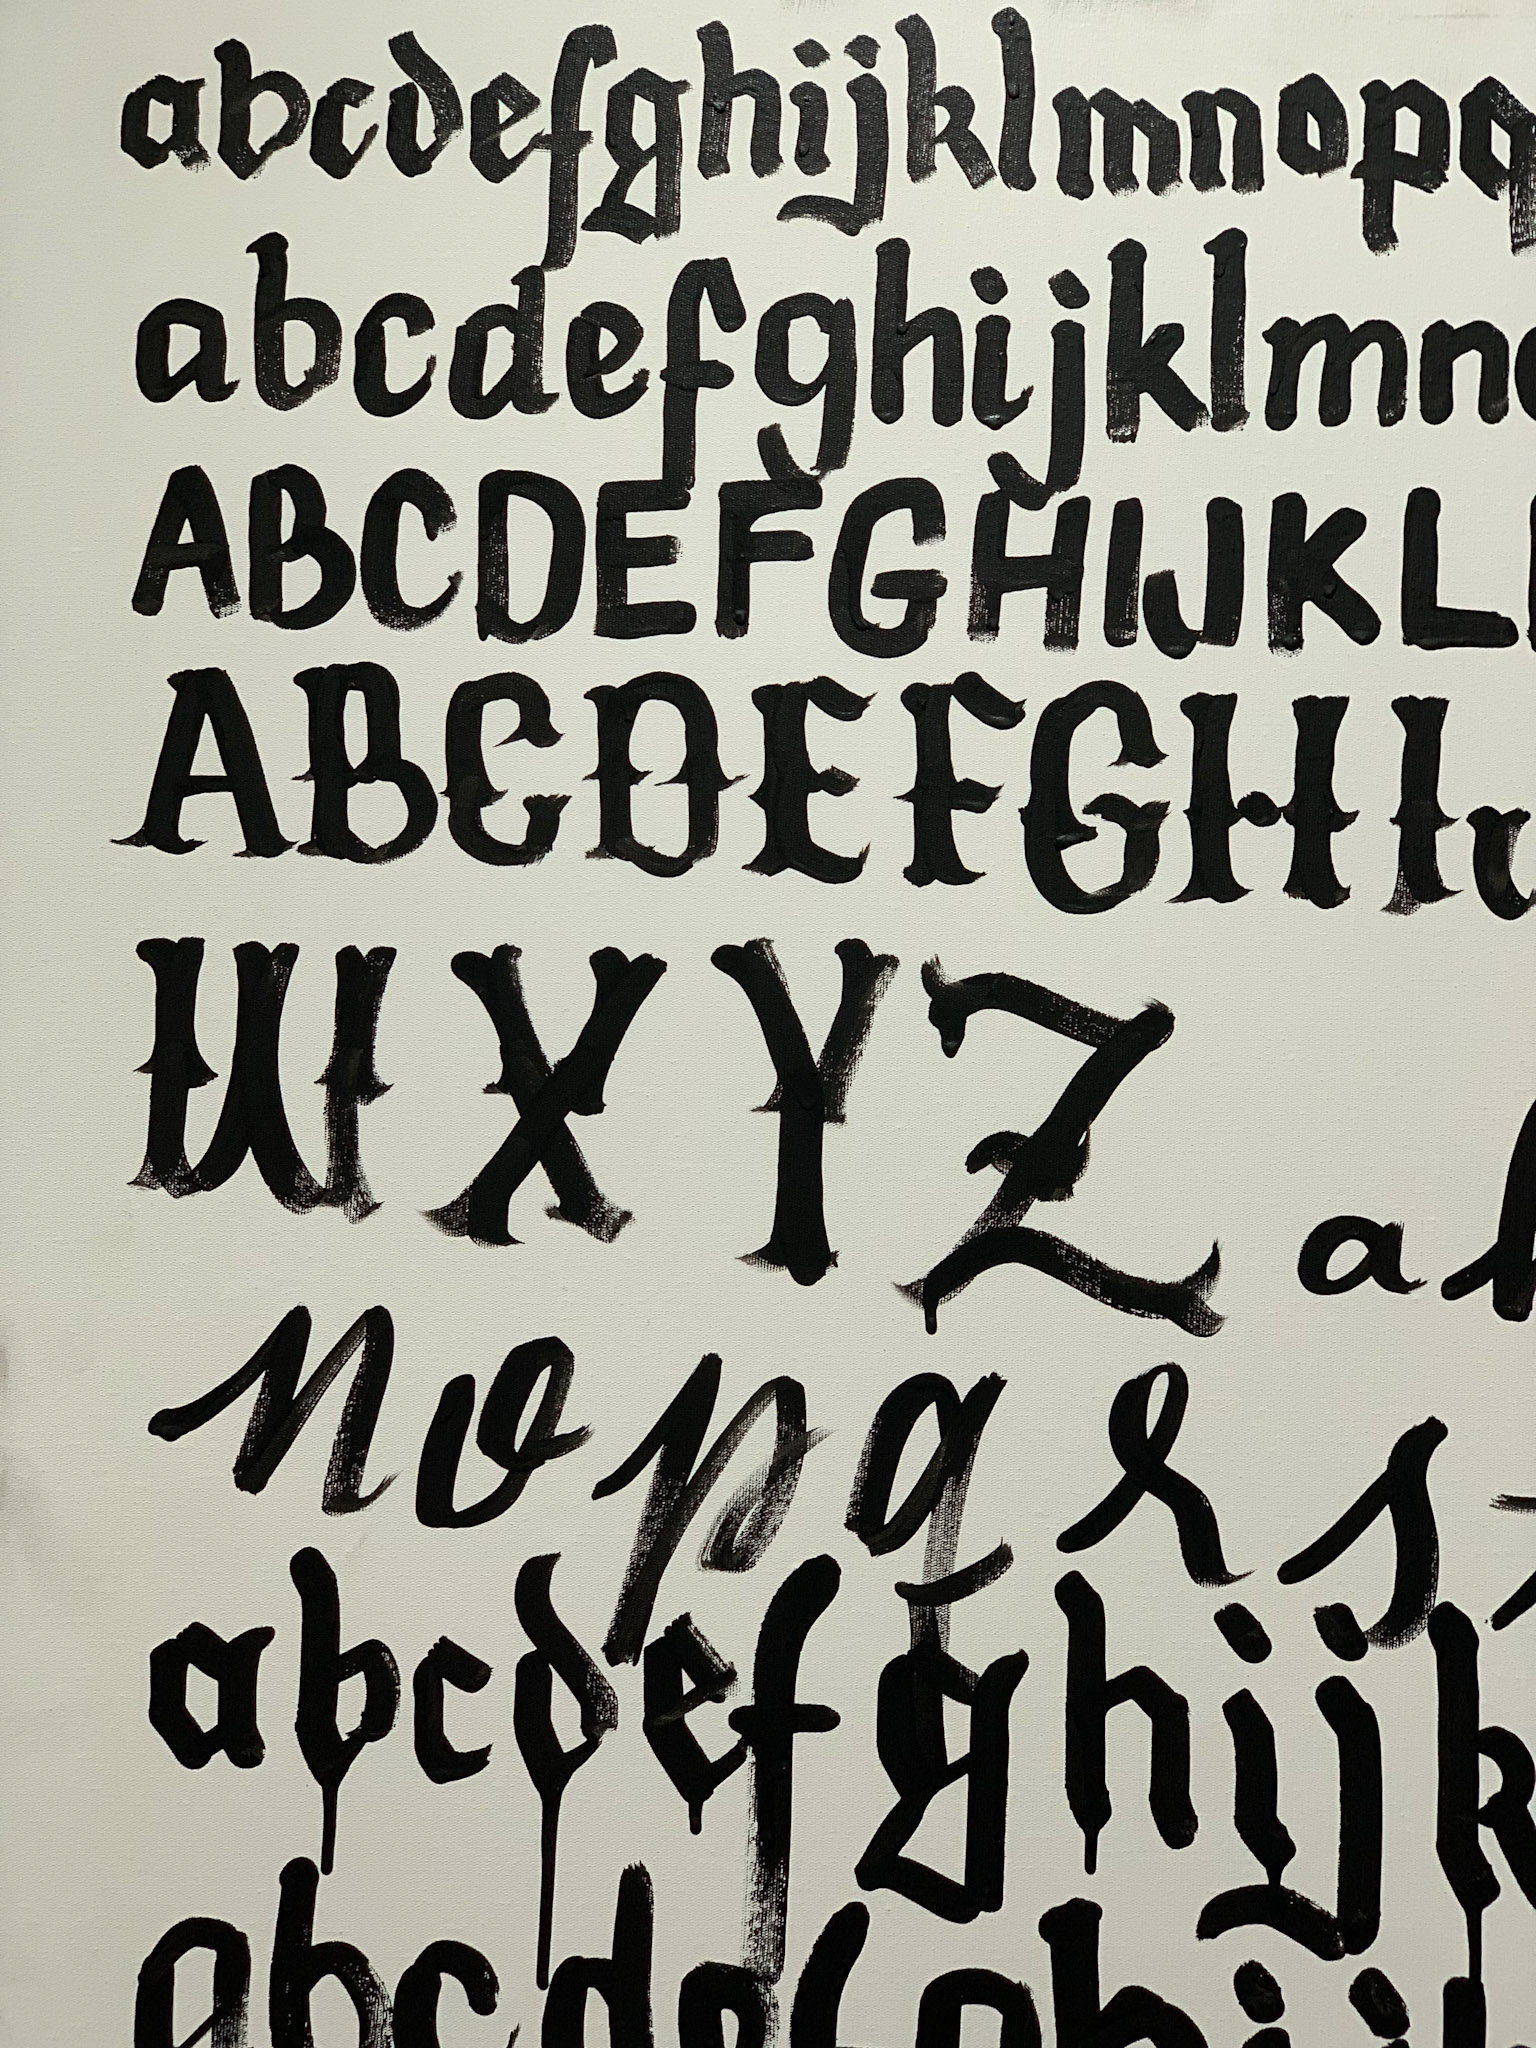 abcdefghijklmnopq
abcdefghijklmno
ABCDEFGHIJKL
ABCDEFGHI
WXYZ
a
nopqrs
abcdefghijk
abcdefghij